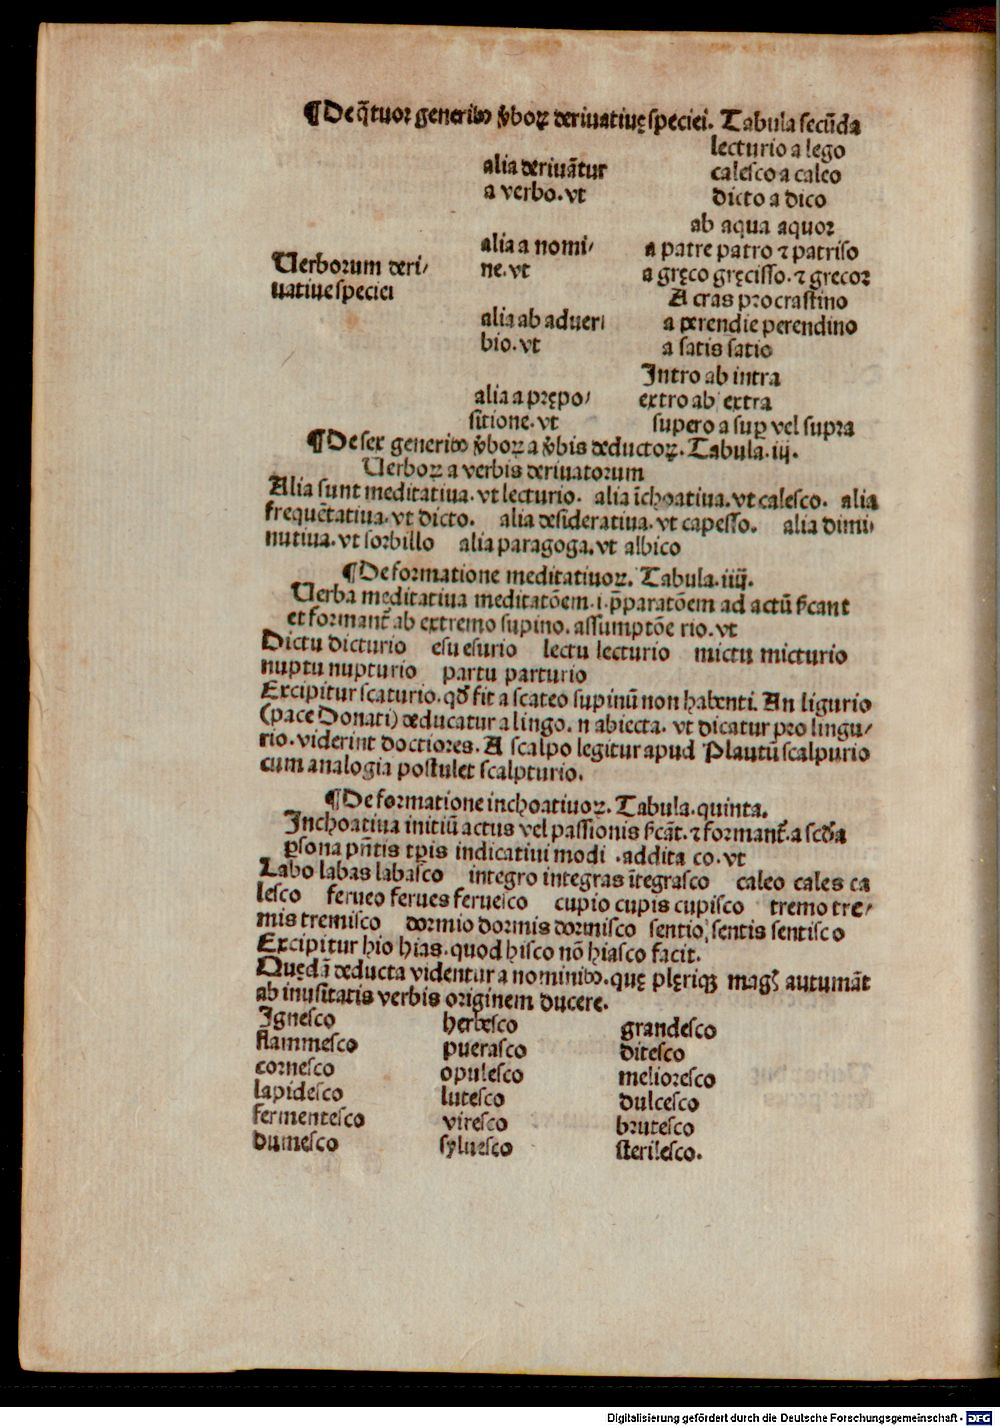 ¶De q̃tuor generibꝰ v̓boꝝ deriuatiuę speciei. Tabula secũda
lecturio a lego
alia deriuãtur calesco a caleo
a verbo. vt dicto a dico
ab aqua aquor
alia a nomi/ a patre patro ⁊ patriso
Uerborum deri/ ne. vt a gręco gręcisso. ⁊ grecor
uatiue speciei A cras procrastino
alia ab aduer/ a perendie perendino
bio. vt a satis satio
Intro ab intra
alia a prępo/ extro ab extra
sitione. vt supero a sup̲ vel supra
¶De sex generibꝰ v̓boꝝ a v̓bis deductoꝝ. Tabula. iij.
Uerboꝝ a verbis deriuatorum
Alia sunt meditatiua. vt lecturio. alia ĩchoatiua. vt calesco. alia
frequẽtatiua. vt dicto. alia desideratiua. vt capesso. alia dimi/
nutiua. vt sorbillo alia paragoga. vt albico
¶De formatione meditatiuoꝝ. Tabula. iiij.
Uerba meditatiua meditatõem. i. p̃paratõem ad actũ s̓cant
et formant̃ ab extremo supino. assumptõe rio. vt
Dictu dicturio esu esurio lectu lecturio mictu micturio
nuptu nupturio partu parturio
Excipitur scaturio. qđ fit a scateo supinũ non habenti. An ligurio
(pace Donati) deducatur a lingo. n abiecta. vt dicatur pro lingu/
rio. viderint doctiores. A scalpo legitur apud Plautũ scalpurio
cum analogia postulet scalpturio.
¶De formatione inchoatiuoꝝ. Tabula. quinta.
Inchoatiua initiũ actus vel passionis s̓cãt. ⁊ formant̃. a scđa
ꝑsona pñtis tꝑis indicatiui modi . addita co. vt
Labo labas labasco integro integras ĩtegrasco caleo cales ca
lesco ferueo ferues feruesco cupio cupis cupisco tremo tre/
mis tremisco dormio dormis dormisco sentio, sentis sentisco
Excipitur hio hias. quod hisco nõ hiasco facit.
Quędã deducta videntur a nominibꝰ. quę plęriqꝫ mag̃ autumãt
ab inusitatis verbis originem ducere.
Ignesco herbesco grandesco
flammesco puerasco ditesco
cornesco opulesco melioresco
lapidesco lutesco dulcesco
fermentesco viresco brutesco
dumesco syluesco sterilesco.
Digitalisierung gefördert durch die Deutsche Forschungsgemeinschaft - DFG